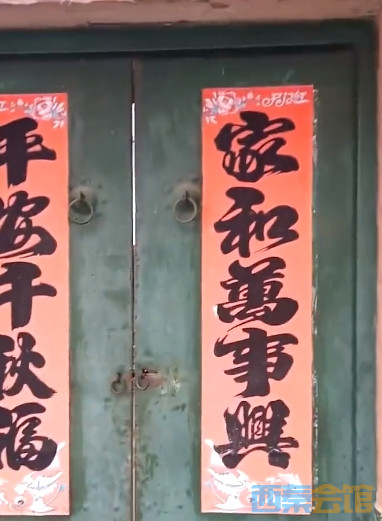 家和萬事興
平安千秋福
西秦会馆